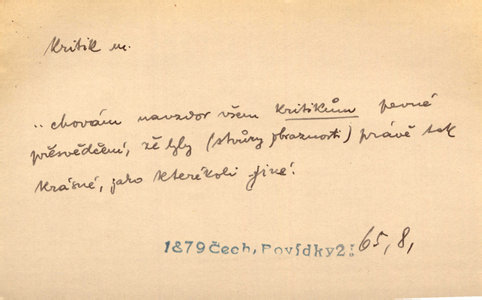 Kritik m.
„chovám navzdor všem kritikům pevné
přesvědčení, že byly (stvůry obraznosti) právě tak
krásné, jako kterékoli jiné.
1879 Čech, Povídky 2: 65, 8,